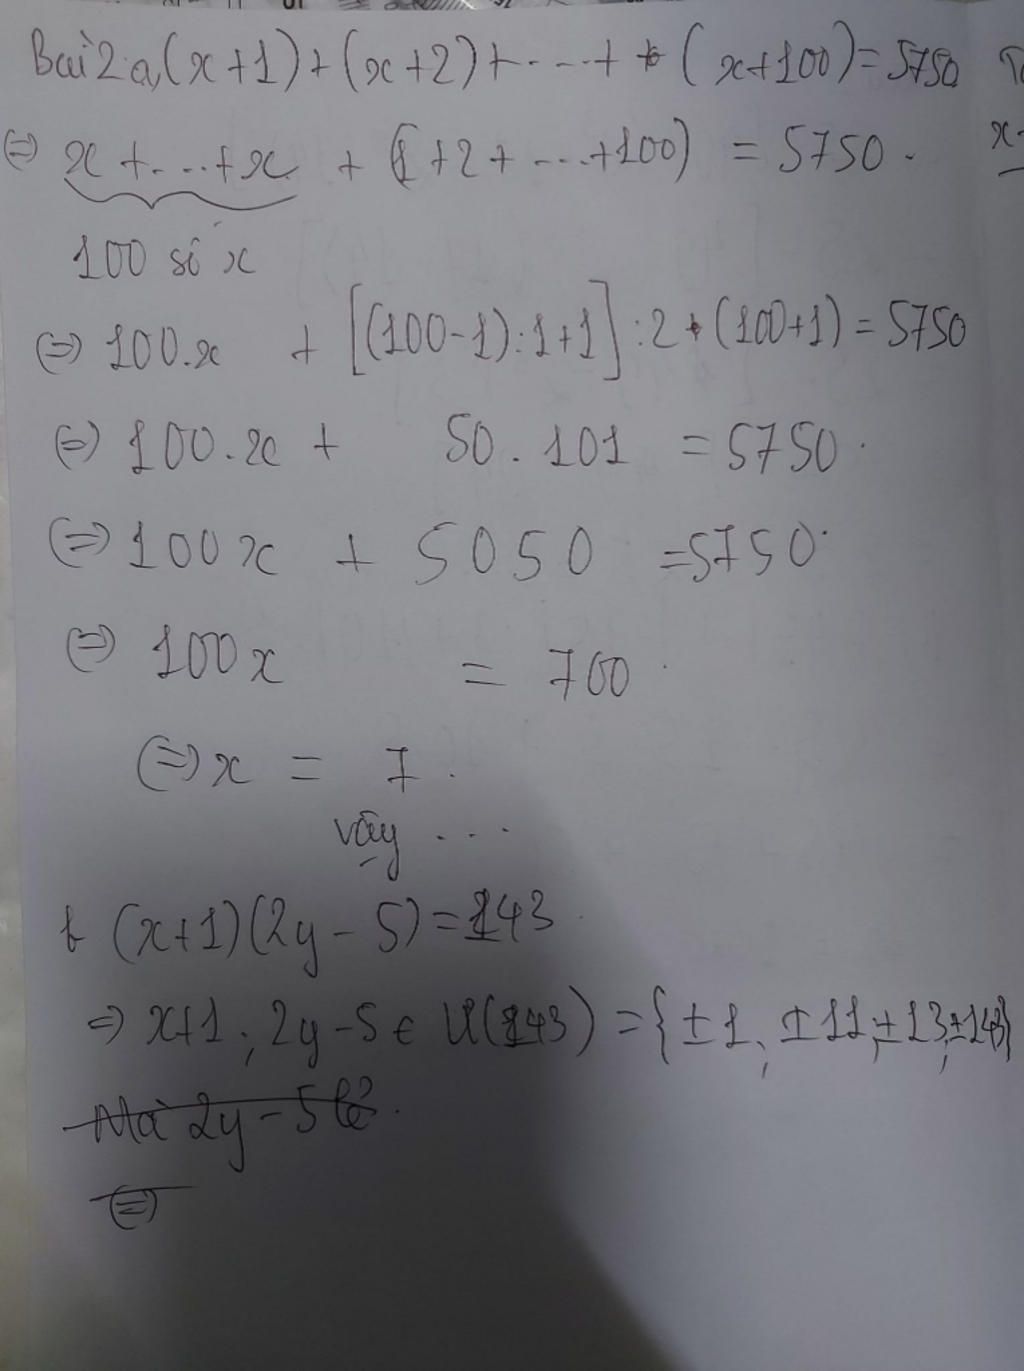 Bài 2 a, (x+1) + (x+2) + ... + + (x+100) = 5750
⇔ x + ... + x + (1+2+ ... +100) = 5750.
x
100 số x
⇔ 100.x + [(100-1):1+1]:2.(100+1) = 5750
⇔ 100.x + 50.101 = 5750.
⇔ 100x + 5050 = 5750.
⇔ 100x = 700.
⇔ x = 7.
vậy ...
b (x+1)(2y-5) = 143.
⇒ x+1; 2y-5 ∈ Ư(143) = {±1; ±11; ±13; ±143}
Mà 2y-5 lẻ.
⇔